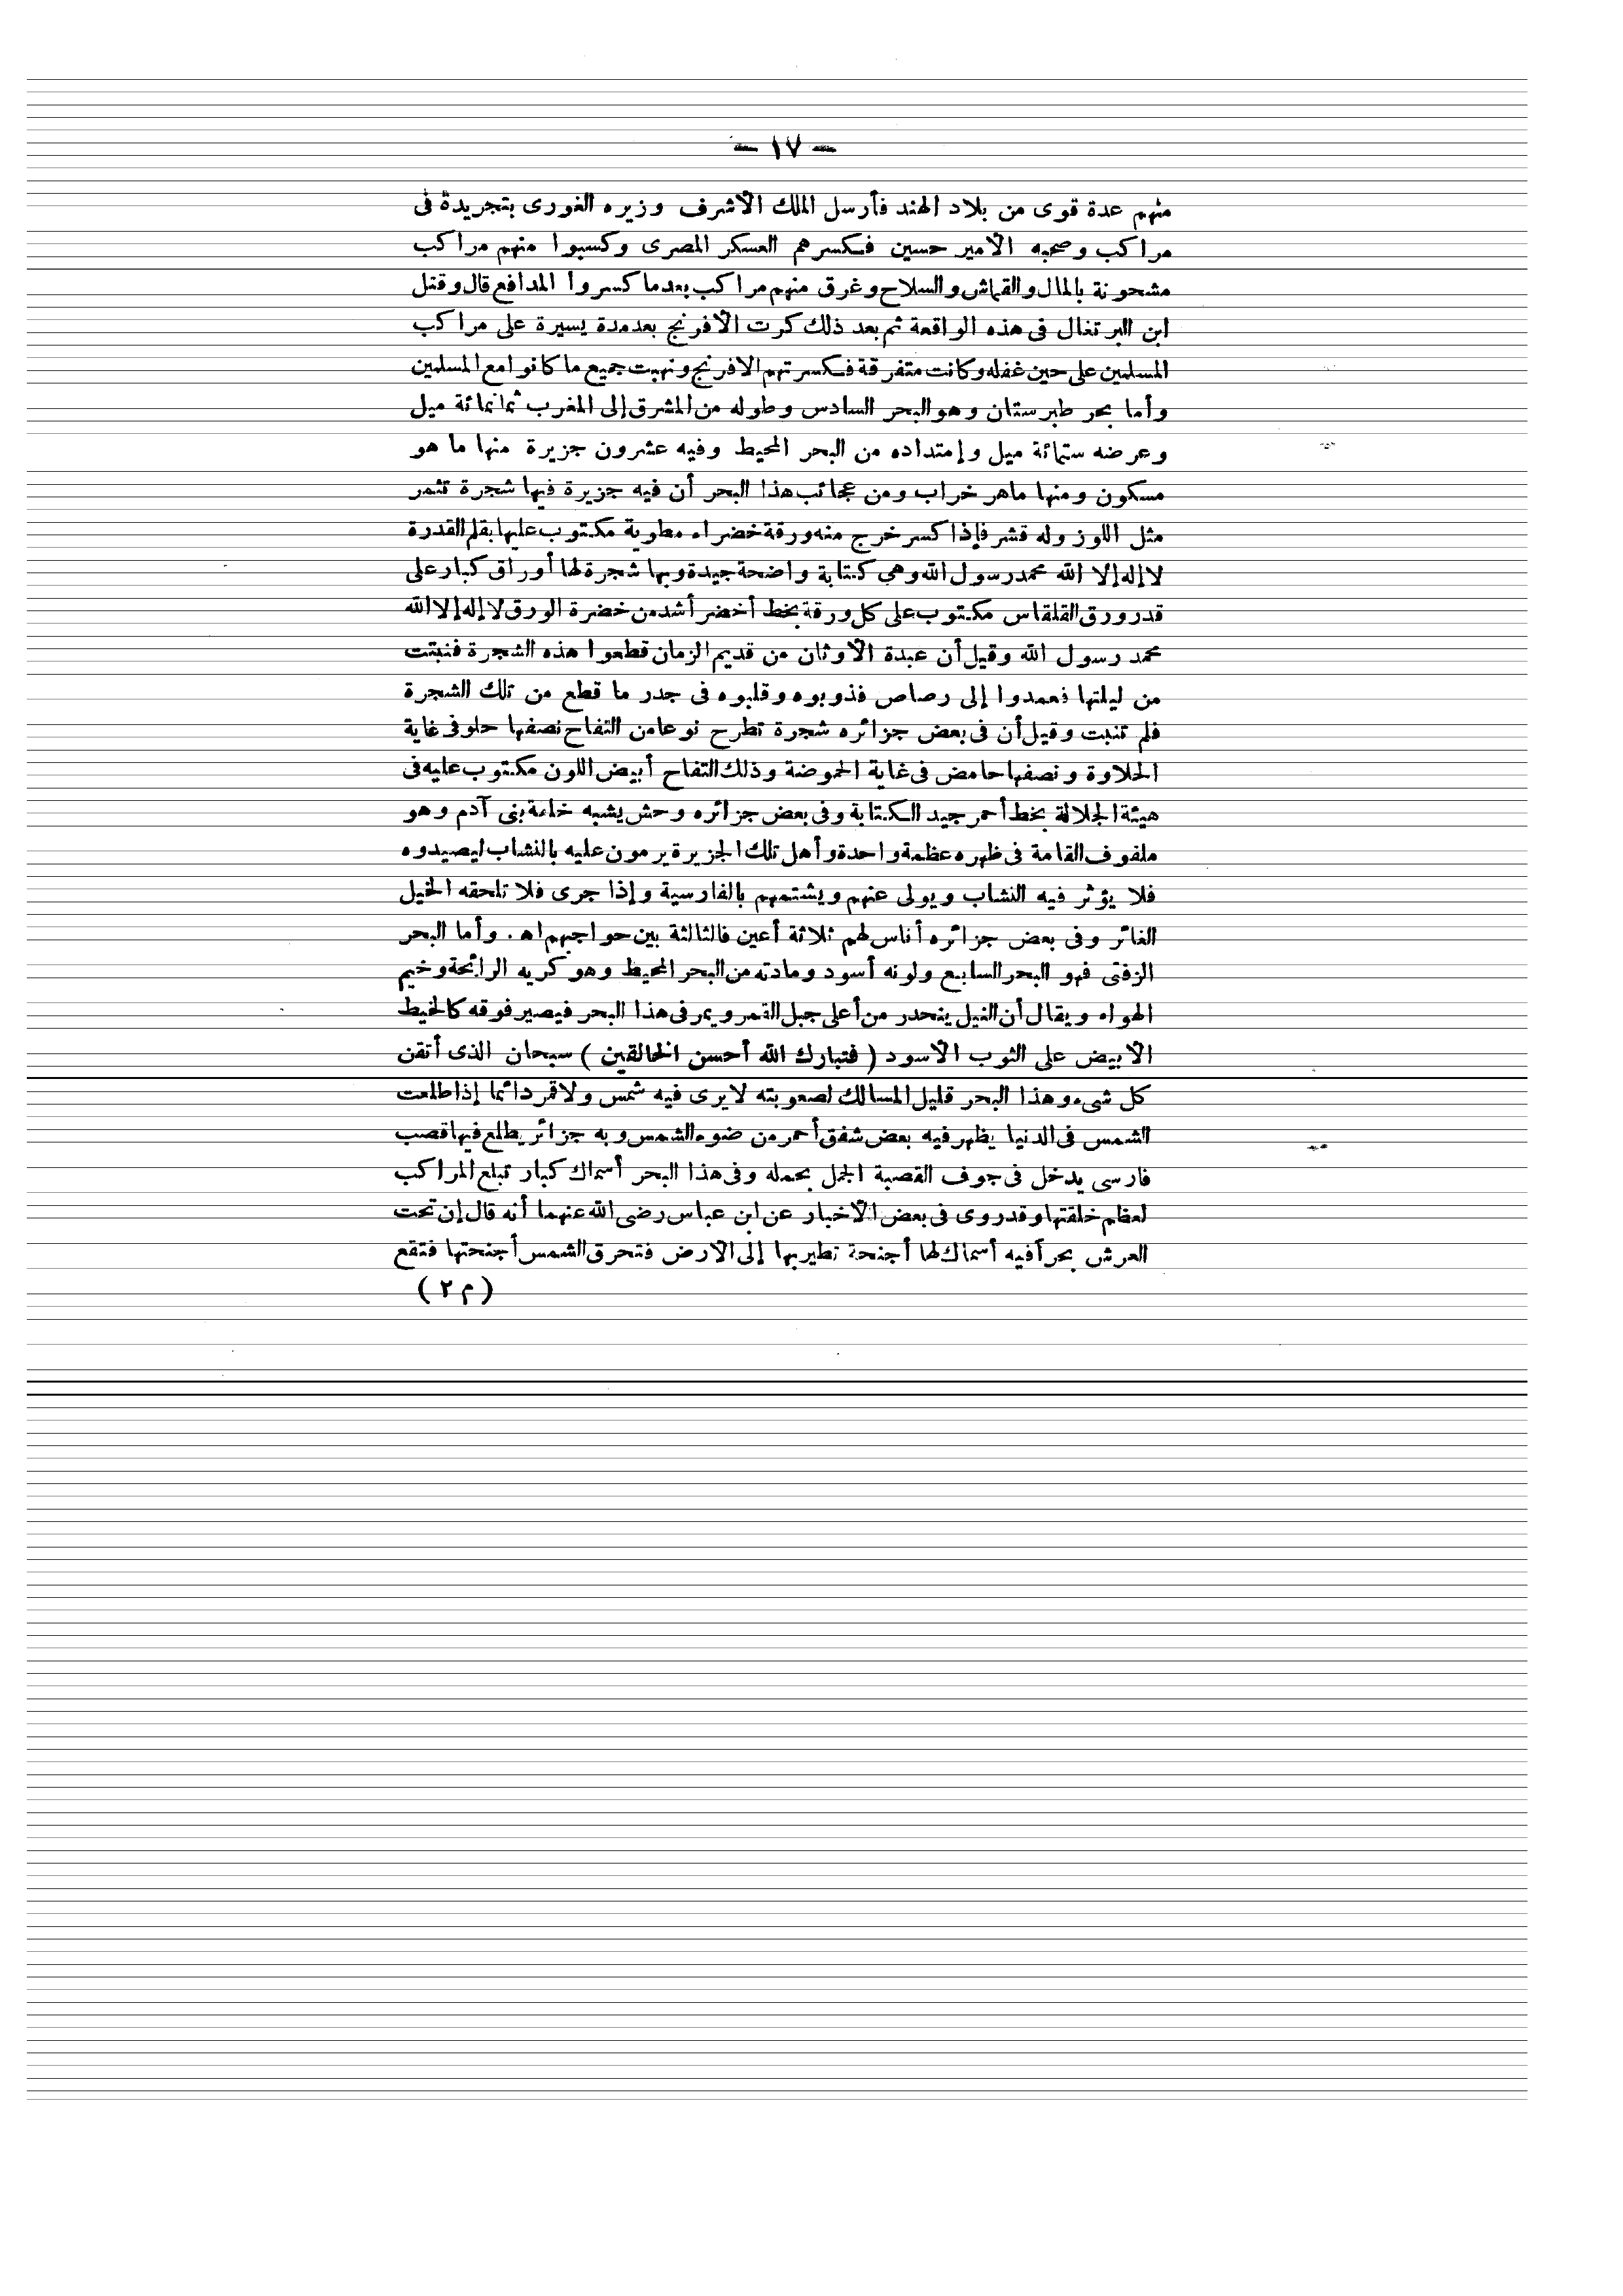 – ١٧ –
منهم عدة قوى من بلاد الهند فأرسل الملك الأشرف وزيره الغورى بتجريدة فى
مراكب وصحبه الأمير حسين فكسرهم العسكر المصرى وكسبوا منهم مراكب
مشحونة بالمال والقماش والسلاح وغرق منهم مراكب بعدما كسروا المدافع قال وقتل
ابن البرتغال فى هذه الواقعة ثم بعد ذلك كرت الأفرنج بعدمدة يسيرة على مراكب
المسلمين على حين غفله وكانت متفرقة فكسرتهم الافرنج ونهبت جميع ما كانوا مع المسلمين
وأما بحر طبرستان وهو البحر السادس وطوله من المشرق إلى المغرب ثمانمائة ميل
وعرضه ستمائة ميل وإمتداده من البحر المحيط وفيه عشرون جزيرة منها ما هو
مسكون ومنها ماهر خراب ومن عجائب هذا البحر أن فيه جزيرة فيها شجرة تثمر
مثل اللوز وله قشر فإذا كسر خرج منه ورقة خضراء مطوية مكتوب عليها بقلم القدرة
لا إله إلا الله محمد رسول الله وهى كتابة واضحة جيدة وبها شجرة لها أوراق كبار على
قدر ورق القلقاس مكتوب على كل ورقة بخط أخضر أشد من خضرة الورق لا إله إلا الله
محمد رسول الله وقيل أن عبدة الأوثان من قديم الزمان قطعوا هذه الشجرة فنبتت
من ليلتها فعمدوا إلى رصاص فذوبوه وقلبوه فى جدر ما قطع من تلك الشجرة
فلم تنبت وقيل أن فى بعض جزائره شجرة تطرح نوعا من التفاح نصفها حلو فى غاية
الحلاوة ونصفها حامض فى غاية الحموضة وذلك التفاح أبيض اللون مكتوب عليه فى
هيئة الجلالة بخط أحمر جيد الكتابة وفى بعض جزائره وحش يشبه خلقة بنى آدم وهو
ملفوف القامة فى ظهره عظمة واحدة وأهل تلك الجزيرة يرمون عليه بالنشاب ليصيدوه
فلا يؤثر فيه النشاب ويولى عنهم ويشتمهم بالفارسية وإذا جرى فلا تلحقه الخيل
الغائر وفى بعض جزائره أناس لهم ثلاثة أعين فالثالثة بين حواجبهم اه . وأما البحر
الزفتى فهو البحر السابع ولونه أسود ومادته من البحر المحيط وهو كريه الرائحة وخيم
الهواء ويقال أن النيل ينحدر من أعلى جبل القمر ويمر فى هذا البحر فيصير فوقه كالخيط
الأبيض على الثوب الأسود ( فتبارك الله أحسن الخالقين ) سبحان الذى أتقن
كل شىء وهذا البحر قليل المسالك لصعوبته لا يرى فيه شمس ولا قمر دائما إذا طلعت
الشمس فى الدنيا يظهر فيه بعض شفق أحمر من ضوء الشمس وبه جزائر يطلع فيها قصب
فارسى يدخل فى جوف القصبة الجمل بحمله وفى هذا البحر أسماك كبار تبلع المراكب
لعظم خلقتها وقد روى فى بعض الأخبار عن ابن عباس رضى الله عنهما أنه قال إن تحت
العرش بحرا فيه أسماك لها أجنحة تطير بها إلى الأرض فتحرق الشمس أجنحتها فتقع
( م ٢ )